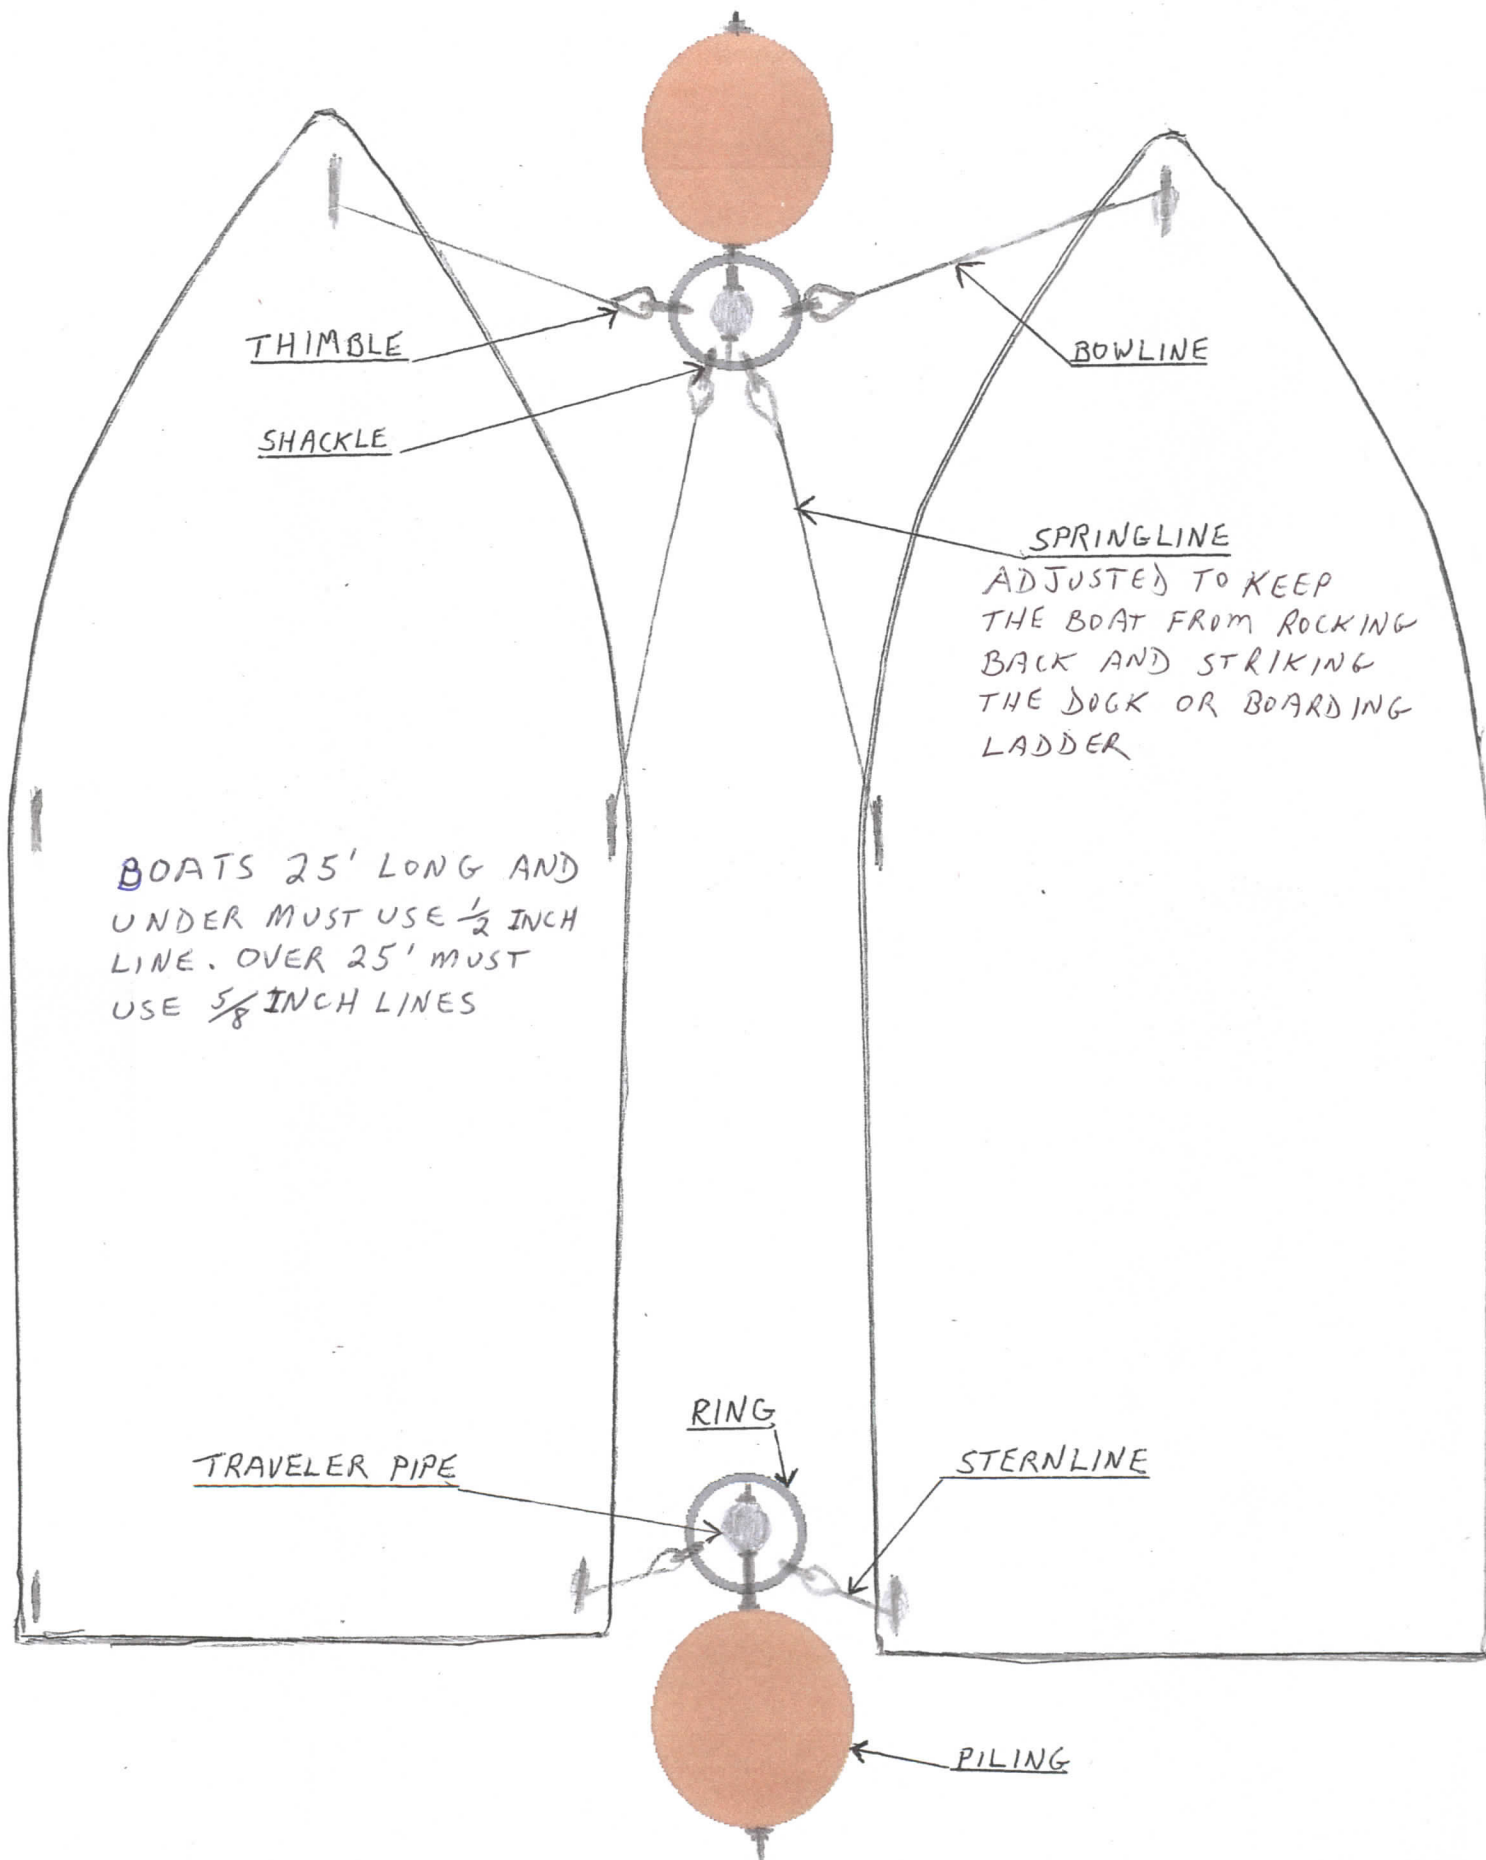 THIMBLE
BOWLINE
SHACKLE
SPRINGLINE
ADJUSTED TO KEEP
THE BOAT FROM ROCKING
BACK AND STRIKING
THE DOCK OR BOARDING
LADDER
BOATS 25' LONG AND
UNDER MUST USE 1/2 INCH
LINE. OVER 25' MUST
USE 5/8 INCH LINES
RING
TRAVELER PIPE
STERNLINE
PILING